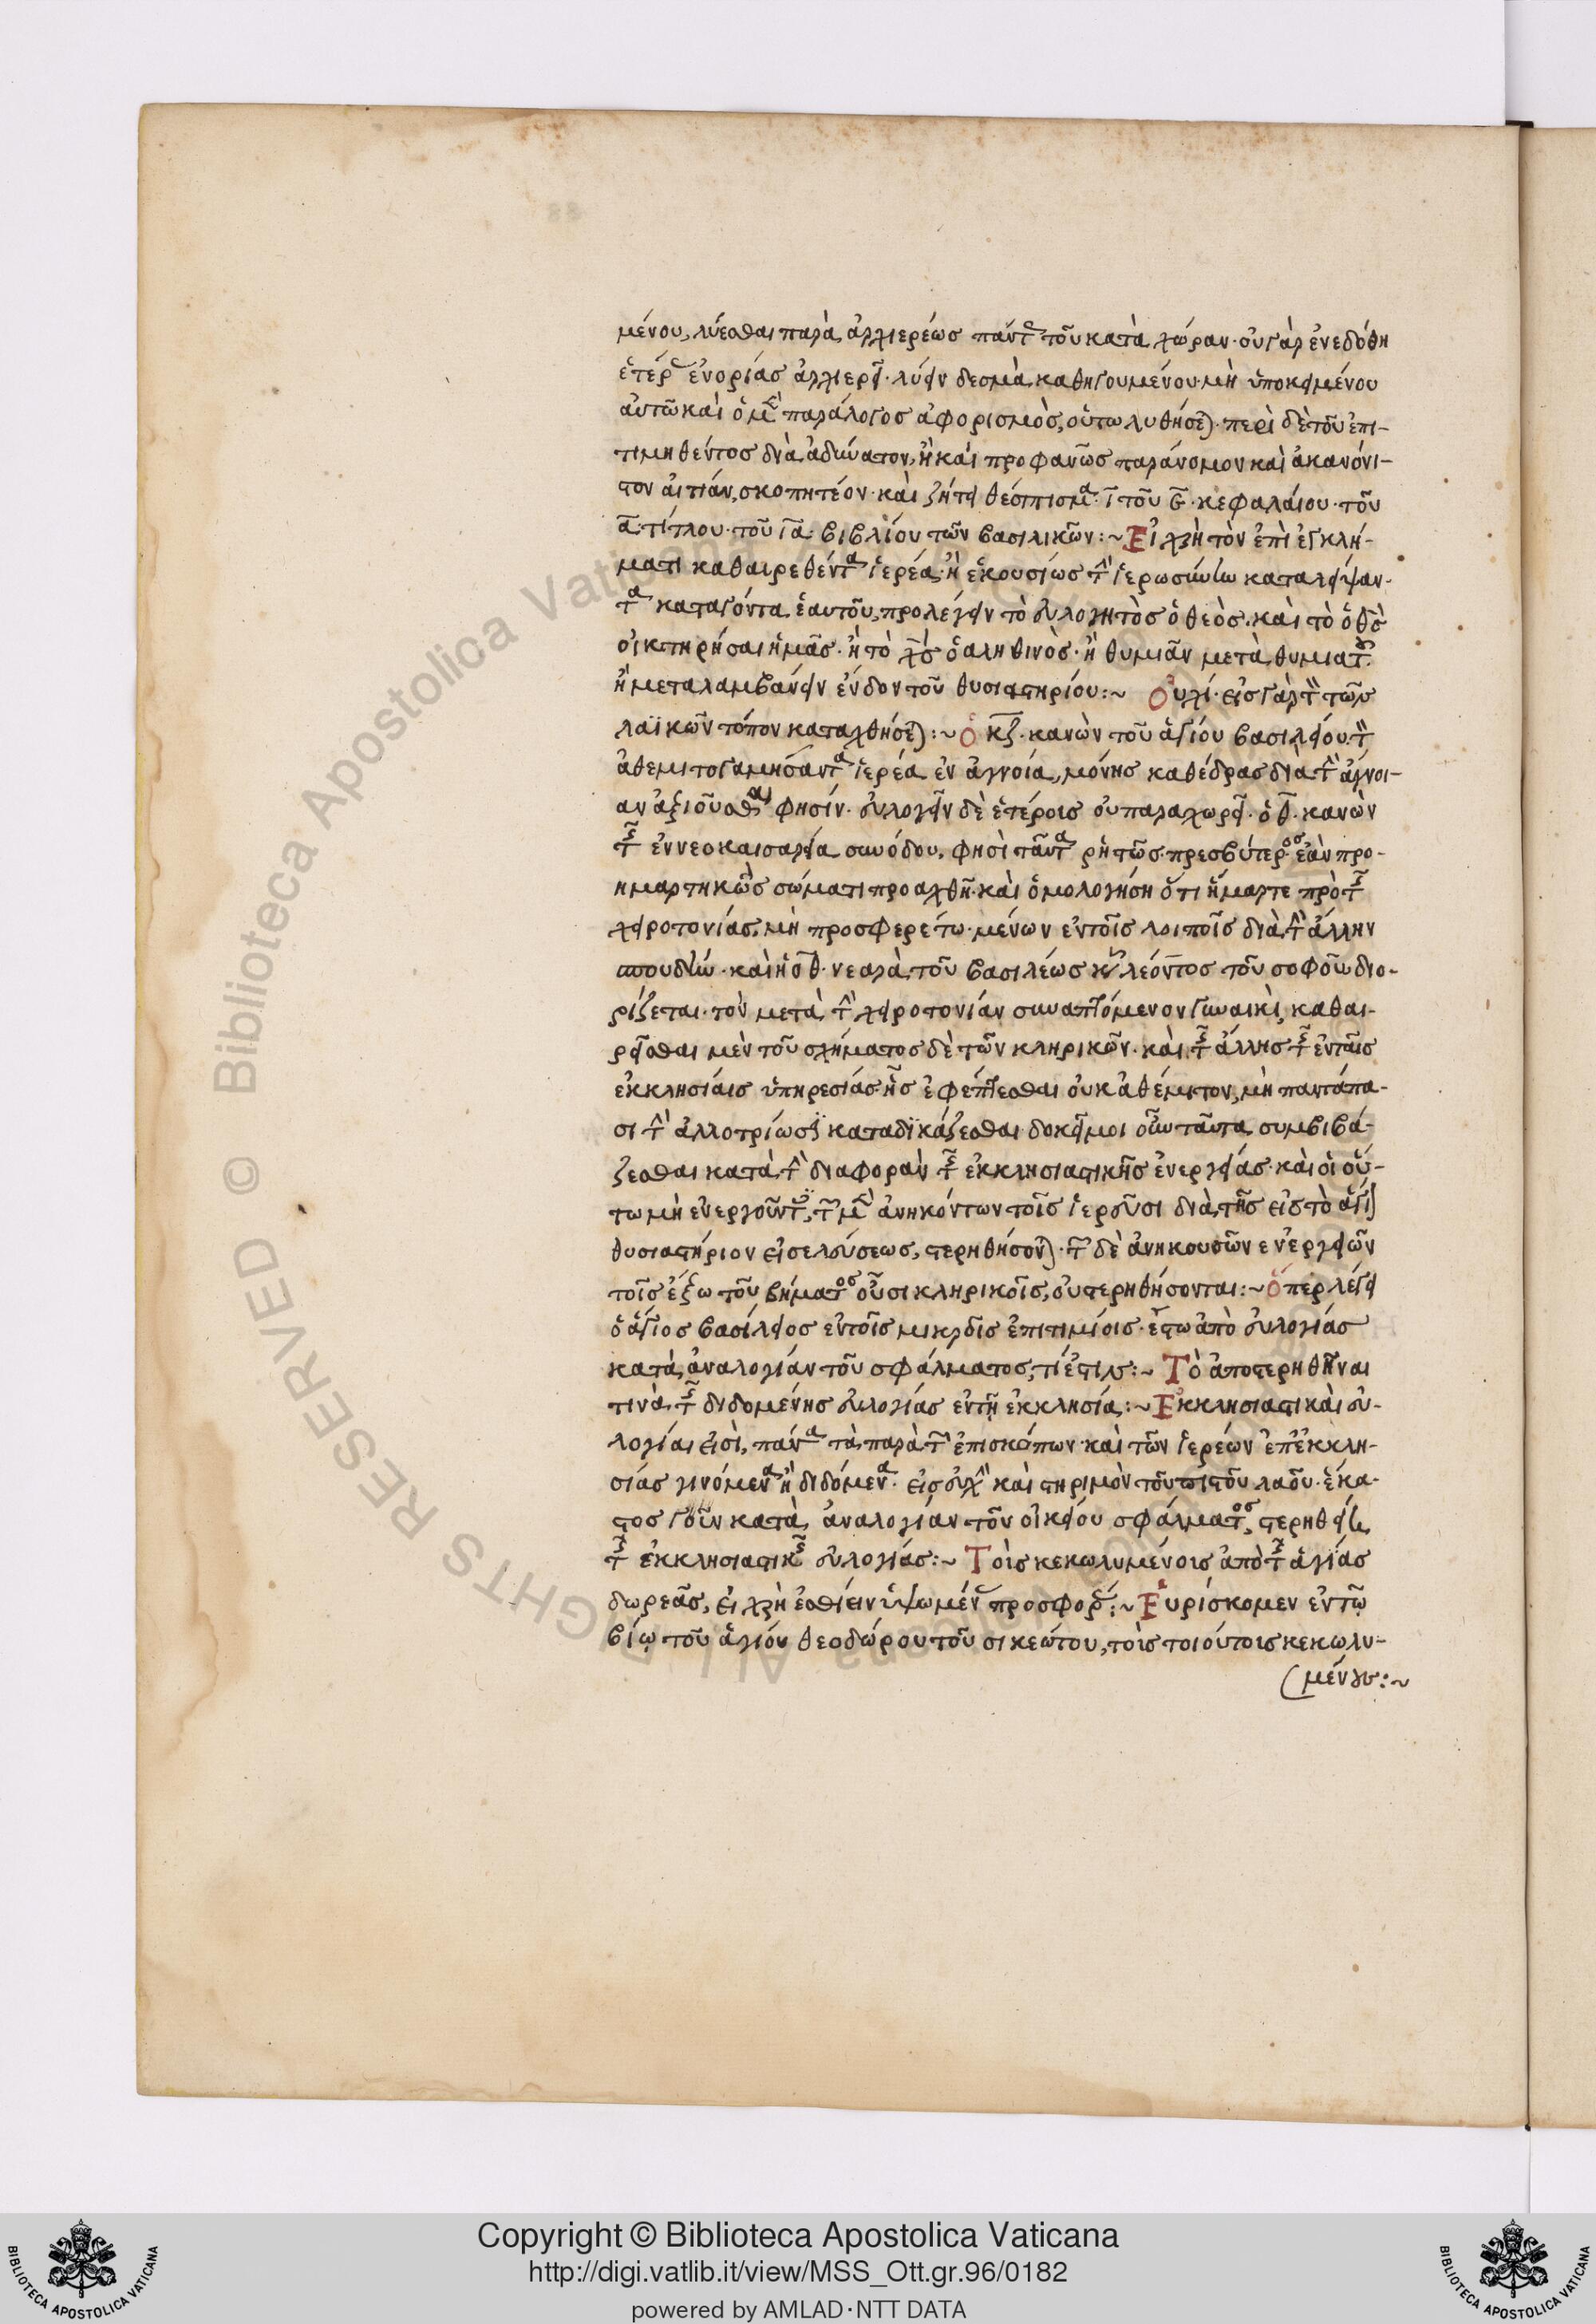 μένου, λύεσθαι παρὰ ἀρχιερέως πάντως τοῦ κατὰ χώραν· οὐ γὰρ ἐνεδόθη
ἑτέρας ἐνορίας ἀρχιερεῖ· λύειν δεσμὰ καθηγουμένου μὴ ὑποκειμένου
αὐτῶ καὶ ὁ μὲν παράλογος ἀφορισμὸς, οὕτω λυθήσεται· περὶ δὲ τοῦ ἐπι-
τιμηθέντος διὰ ἀδύνατον, ἢ καὶ προφανῶς παράνομον καὶ ἀκανόνι-
στον αἰτίαν, σκοπητέον· καὶ ζήτει θέσπισμα ι τοῦ ϛ· κεφαλαίου· τοῦ
α· τίτλου· τοῦ ια· βιβλίου τῶν βασιλικῶν:~ Εἰ χρὴ τὸν ἐπὶ ἐγκλή-
ματι καθαιρεθέντα ἱερέα· ἢ ἑκουσίως τὴν ἱερωσύνην καταλείψαν-
τα κατάγοντα ἑαυτοῦ, προλέγειν τὸ εὐλογητὸς ὁ θεὸς· καὶ τὸ ὁ θς
οἰκτηρήσαι ἡμᾶς· ἢ τὸ χς ὁ ἀληθινὸς· ἢ θυμιᾶν μετὰ θυμιατοῦ
ἢ μεταλαμβάνειν ἔνδον τοῦ θυσιαστηρίου:~ Οὐχί· εἰς γὰρ τὸν τῶν
λαϊκῶν τόπον καταχθήσεται:~ ὁ κζ· κανὼν τοῦ ἁγίου βασιλείου· τὸν
ἀθεμιτογαμήσαντα ἱερέα ἐν ἀγνοία, μόνης καθέδρας διὰ τὴν ἄγνοι-
αν ἀξιοῦσθαι φησίν· εὐλογεῖν δὲ ἑτέροις οὐ παραχωρεῖ· ὁ θ· κανὼν
τῆς ἐν νεοκαισαρεία συνόδου, φησὶ ταῦτα ῥητῶς· πρεσβύτερος ἐὰν προ-
ημαρτηκὼς σώματι προαχθῆ· καὶ ὁμολογήση ὅτι ἥμαρτε πρὸ τῆς
χειροτονίας, μὴ προσφερέτω· μένων ἐν τοῖς λοιποῖς διὰ τὴν ἄλλην
σπουδὴν· καὶ ἡ οθ· νεαρὰ τοῦ βασιλέως κυροῦ λέοντος τοῦ σοφοῦ διο-
ρίζεται· τὸν μετὰ τὴν χειροτονίαν συναπτόμενον γυναικὶ, καθαι-
ρεῖσθαι μὲν τοῦ σχήματος δὲ τῶν κληρικῶν· καὶ τῆς ἄλλης τῆς ἐν ταῖς
ἐκκλησίαις ὑπηρεσίας· ἧς ἐφέπτεσθαι οὐκ ἀθέμιτον, μὴ παντάπα-
σι τὴν ἀλλοτρίωσιν καταδικάζεσθαι· δοκεῖ μοι οὖν ταῦτα συμβιβά-
ζεσθαι κατὰ τὴν διαφορὰν τῆς ἐκκλησιαστικῆς ἐνεργείας· καὶ οἱ οὕ-
τω μὴ ἐνεργοῦντες, τῶν μὲν ἀνηκόντων τοῖς ἱερεῦσι διὰ τῆς εἰς τὸ ἅγιον
θυσιαστήριον εἰσελεύσεως, στερηθήσονται· τῶν δὲ ἀνηκουσῶν ἐνεργειῶν
τοῖς ἔξω τοῦ βήματος οὖσι κληρικοῖς, οὐ στερηθήσονται:~ ὅπερ λέγει
ὁ ἅγιος βασίλειος ἐν τοῖς μικροῖς ἐπιτιμίοις· ἔστω ἀπὸ εὐλογίας
κατὰ ἀναλογίαν τοῦ σφάλματος, τί ἐστιν:~ Τὸ ἀποστερηθῆναι
τινὰ τῆς διδομένης εὐλογίας ἐν τῆ ἐκκλησία:~ Ἐκκλησιαστικαὶ εὐ-
λογίαι εἰσὶ, πάντα τὰ παρὰ τῶν ἐπισκόπων καὶ τῶν ἱερέων ἐπ ἐκκλη-
σίας γινόμενα ἢ διδόμενα· εἰς εὐχὴν καὶ στηριμὸν τοῦ πιστοῦ λαοῦ· ἕκα-
στος γοῦν κατὰ ἀναλογίαν τοῦ οἰκείου σφάλματος, στερηθείη
τῆς ἐκκλησιαστικῆς εὐλογίας:~ Τοῖς κεκωλυμένοις ἀπὸ τῆς ἁγίας
δωρεᾶς, εἰ χρὴ ἐσθίειν ὑψωμένην προσφοράν:~ Εὑρίσκομεν ἐν τῶ
βίω τοῦ ἁγίου θεοδώρου τοῦ σικεώτου, τοῖς τοιούτοις κεκωλυ-
μένοις:~
Copyright © Biblioteca Apostolica Vaticana
http://digi.vatlib.it/view/MSS_Ott.gr.96/0182
powered by AMLAD·NTT DATA